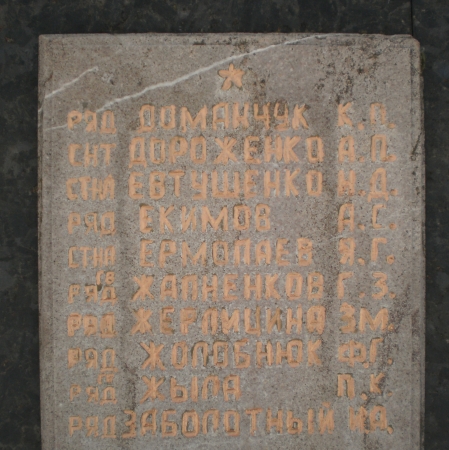 РЯД ДОМАНЧУК К.П.
СЖТ ДОРОЖЕНКО А.П.
СТНЛ ЕВТУШЕНКО И.Д.
РЯД ЕКИМОВ А.С.
СТНЛ ЕРМОЛАЕВ И.Г.
ГВ РЯД ЖАПНЕНКОВ Г.З.
РЯД ЖЕРЛИЦИНО З.М.
РЯД ЖОЛОБНЮК Ф.Г.
РЯД ЖЫЛА П.К
РЯД ЗАБОРОТНЫЙ И.А.